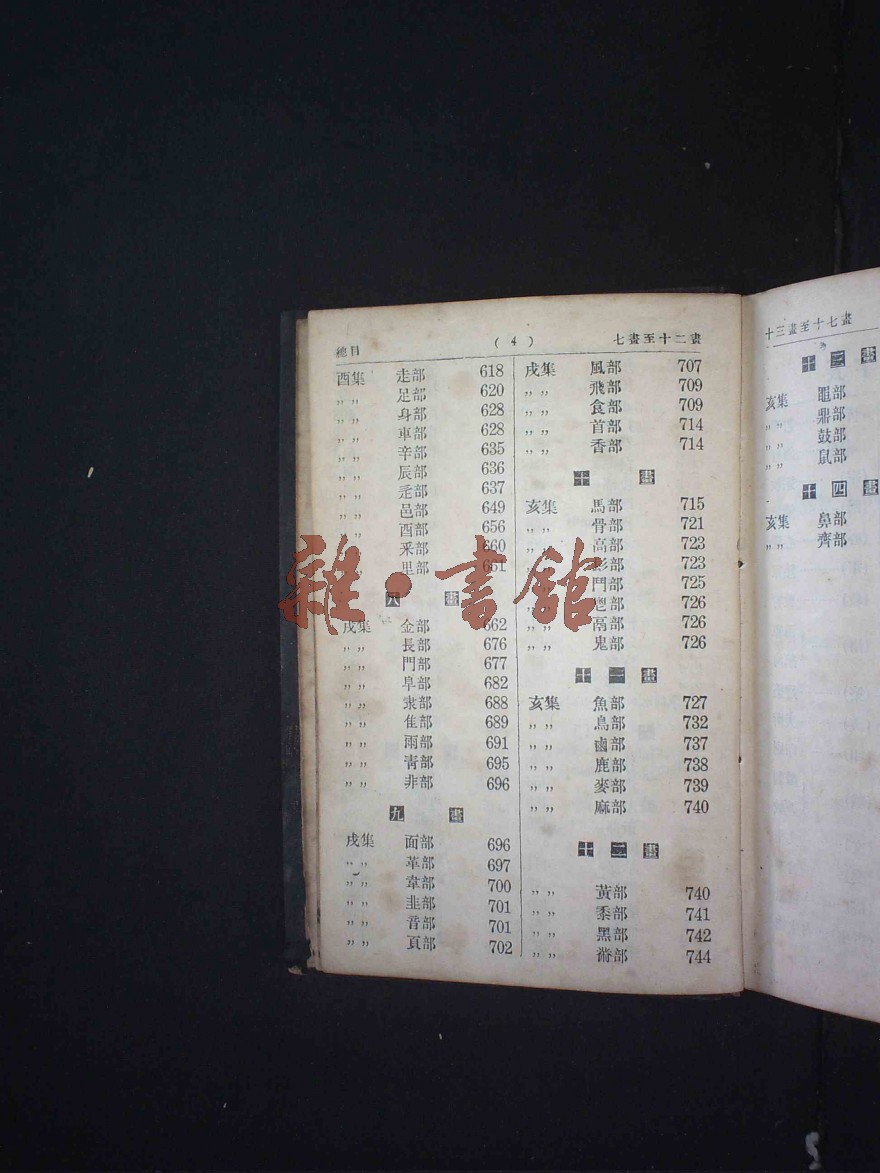 總目 ( 4 ) 七畫至十二畫
酉集 走部 618
,, ,, 足部 620
,, ,, 身部 628
,, ,, 車部 628
,, ,, 辛部 635
,, ,, 辰部 636
,, ,, 辵部 637
,, ,, 邑部 649
,, ,, 酉部 656
釆部 660
,, 里部 661
八畫
戌集 金部 662
,, ,, 長部 676
,, ,, 門部 677
,, ,, 阜部 682
,, ,, 隶部 688
,, ,, 隹部 689
,, ,, 雨部 691
,, ,, 靑部 695
,, ,, 非部 696
九畫
戌集 面部 696
,, ,, 革部 697
,, ,, 韋部 700
,, ,, 韭部 701
,, ,, 音部 701
,, ,, 頁部 702
戌集 風部 707
,, ,, 飛部 709
,, ,, 食部 709
,, ,, 首部 714
,, ,, 香部 714
十畫
亥集 馬部 715
,, ,, 骨部 721
,, ,, 高部 723
髟部 723
鬥部 725
,, 鬯部 726
,, ,, 鬲部 726
,, ,, 鬼部 726
十一畫
亥集 魚部 727
,, ,, 鳥部 732
,, ,, 鹵部 737
,, ,, 鹿部 738
,, ,, 麥部 739
,, ,, 麻部 740
十二畫
,, ,, 黃部 740
,, ,, 黍部 741
,, ,, 黑部 742
,, ,, 黹部 744
十三畫至十七畫
十三畫
亥集 黽部
,, ,, 鼎部
,, ,, 鼓部
,, ,, 鼠部
十四畫
亥集 鼻部
,, ,, 齊部
雜·書館